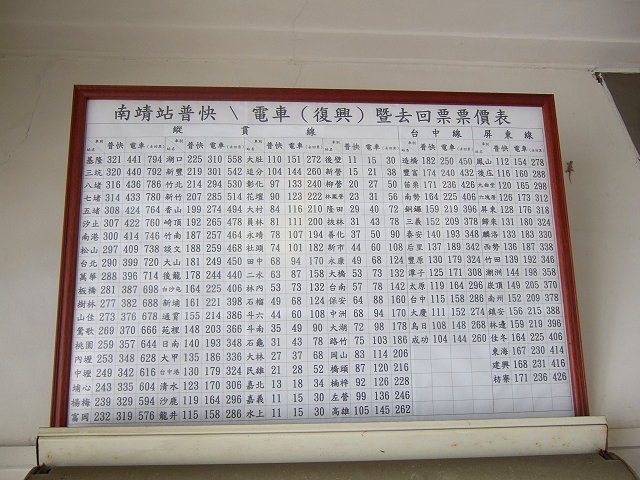 南靖站普快 \ 電車（復興）暨去回票票價表
縱 貫 線 台中線 屏東線
普快 電車 普快 電車 普快 電車 普快 電車 普快 電車 普快 電車
基隆 321 441 794 湖口 225 310 558 大肚 110 151 272 後壁 11 15 30 造橋 182 250 450 鳳山 112 154 278
三坑 320 440 792 新豐 219 301 542 追分 104 144 260 新營 15 21 38 豐富 174 240 432 後庄 116 160 288
八堵 316 436 786 竹北 214 294 530 彰化 97 133 240 柳營 20 27 50 苗栗 171 236 426 九曲堂 120 165 298
七堵 314 433 780 新竹 207 285 514 花壇 90 123 222 林鳳營 23 31 56 南勢 164 225 406 六塊厝 126 173 312
五堵 308 424 764 香山 199 274 494 大村 84 116 210 隆田 29 40 72 銅鑼 159 219 396 屏東 128 176 318
汐止 307 422 760 崎頂 192 265 478 員林 81 111 200 拔林 31 43 78 三義 152 209 378 歸來 131 180 324
南港 300 414 746 竹南 187 257 464 永靖 78 107 194 善化 37 50 90 泰安 140 193 348 麟洛 133 183 330
松山 297 409 738 談文 188 259 468 社頭 74 101 182 新市 44 60 108 后里 137 189 342 西勢 136 187 338
台北 290 399 720 大山 181 249 450 田中 68 94 170 永康 49 68 124 豐原 130 179 324 竹田 139 192 346
萬華 288 396 714 後龍 178 244 440 二水 63 87 158 大橋 53 73 132 潭子 125 171 308 潮洲 144 198 358
板橋 281 387 698 白沙屯 164 225 406 林內 53 73 132 台南 57 78 142 太原 119 164 296 崁頂 149 205 370
樹林 277 382 688 新埔 161 221 398 石榴 49 68 124 保安 64 88 160 台中 115 158 286 南州 152 209 378
山佳 273 376 678 通霄 155 214 386 斗六 44 60 108 中洲 68 94 170 大慶 111 152 274 鎮安 156 215 388
鶯歌 269 370 666 苑裡 148 203 366 斗南 35 49 90 大湖 72 98 178 烏日 108 148 268 林邊 159 219 396
桃園 259 357 644 日南 140 193 348 石龜 31 43 78 路竹 75 103 186 成功 104 144 260 佳冬 164 225 406
內壢 253 348 628 大甲 135 186 336 大林 27 37 68 岡山 83 114 206 東海 167 230 414
中壢 249 342 616 台中港 130 179 324 民雄 21 28 52 橋頭 87 120 216 建興 168 231 416
埔心 243 335 604 清水 123 170 306 嘉北 13 18 34 楠梓 92 126 228 枋寮 171 236 426
楊梅 239 329 594 沙鹿 119 164 296 嘉義 11 15 30 左營 99 136 246
富岡 232 319 576 龍井 115 158 286 水上 11 15 30 高雄 105 145 262